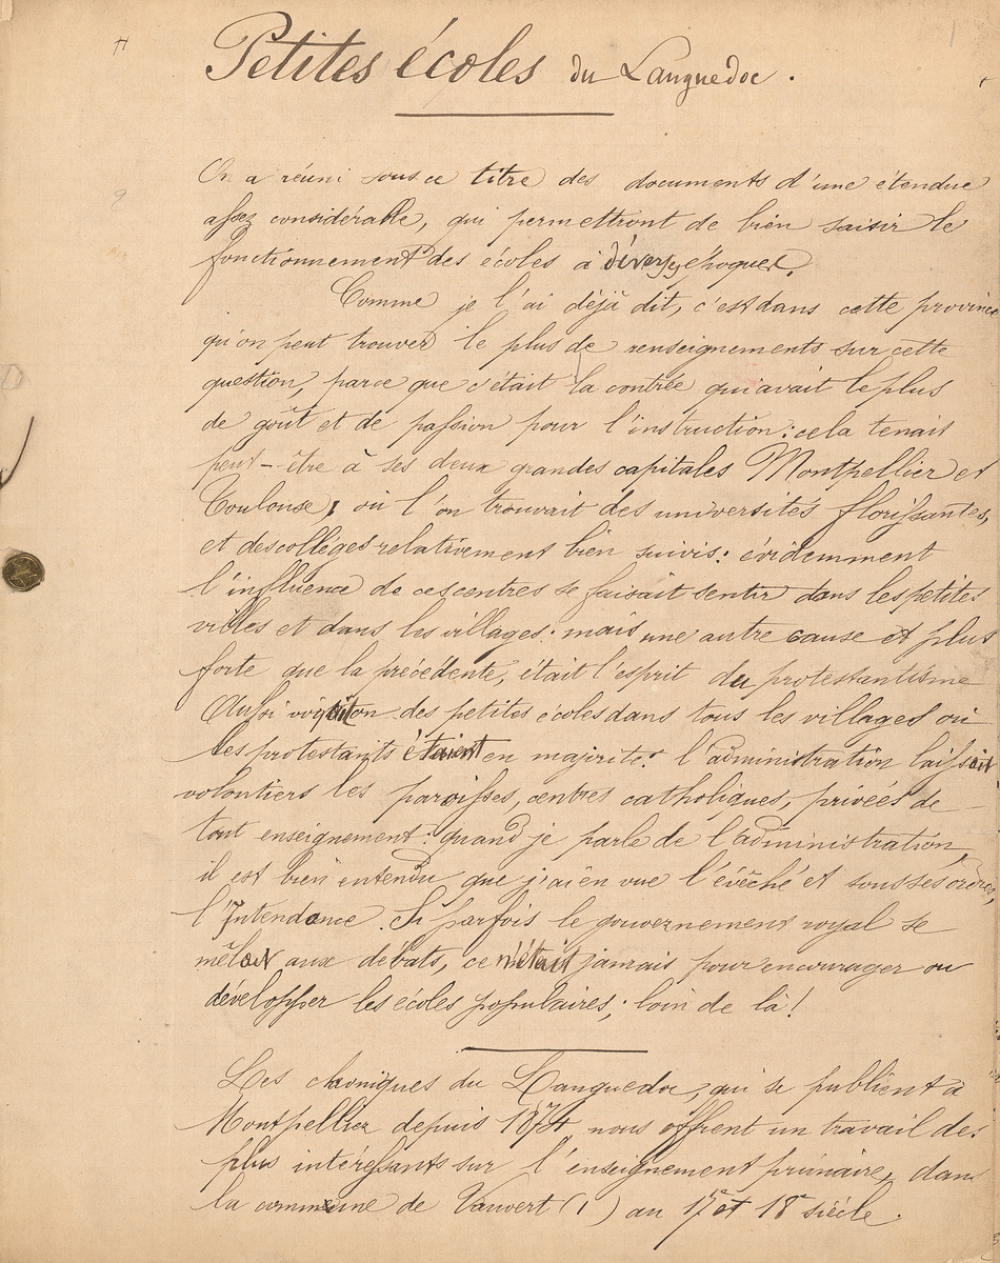 Petites écoles du Languedoc.
On a réuni sous ce titre des documents d'une étendue
assez considérable, qui permettront de bien saisir le
fonctionnement des écoles à divers époques.
Comme je l'ai déjà dit, c'est dans cette province
qu'on peut trouver le plus de renseignements sur cette
question, parce que c'était la contrée qui avait le plus
de goût et de passion pour l'instruction : cela tenait
peut-être à ses deux grandes capitales Montpellier et
Toulouse, où l'on trouvait des universités florissantes,
et des collèges relativement bien suivis : évidemment
l'influence de ces centres se faisait sentir dans les petites
villes et dans les villages. mais une autre cause et plus
forte que la précédente, était l'esprit du protestantisme
Aussi voyait on des petites écoles dans tous les villages où
les protestants étaient en majorité. l'administration laissait
volontiers les paroisses, centres catholiques, privées de
tout enseignement : quand je parle de l'administration,
il est bien entendu que j'ai en vue l'évêché et sous ses ordres,
l'Intendance. Si parfois le gouvernement royal se
mêlait aux débats, ce n'était jamais pour encourager ou
développer les écoles populaires; loin de là !
Les chroniques du Languedoc, qui se publient à
Montpellier depuis 1874, nous offrent un travail des
plus intéressants sur l'enseignement primaire, dans
la commune de Vauvert (1) au 17e et 18e siècle.